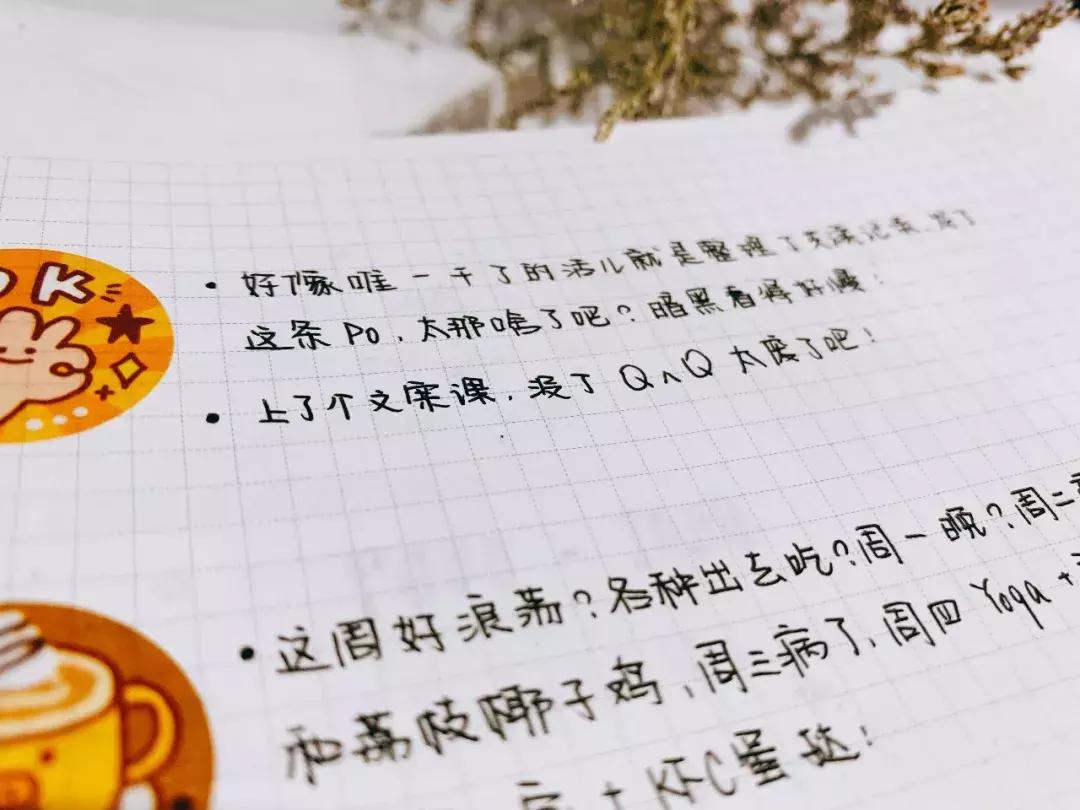 OK
· 好像唯一干了的活儿就是整理了支撑记录,发了
这条Po,太那啥了吧?暗黑看得好慢!
· 上了个文案课,没了QnQ 太废了吧!
· 这周好浪荡?各种出去吃?周一晚?,周二
和荔枝椰子鸡,周三病了,周四Yoga+
+KFC蛋挞!